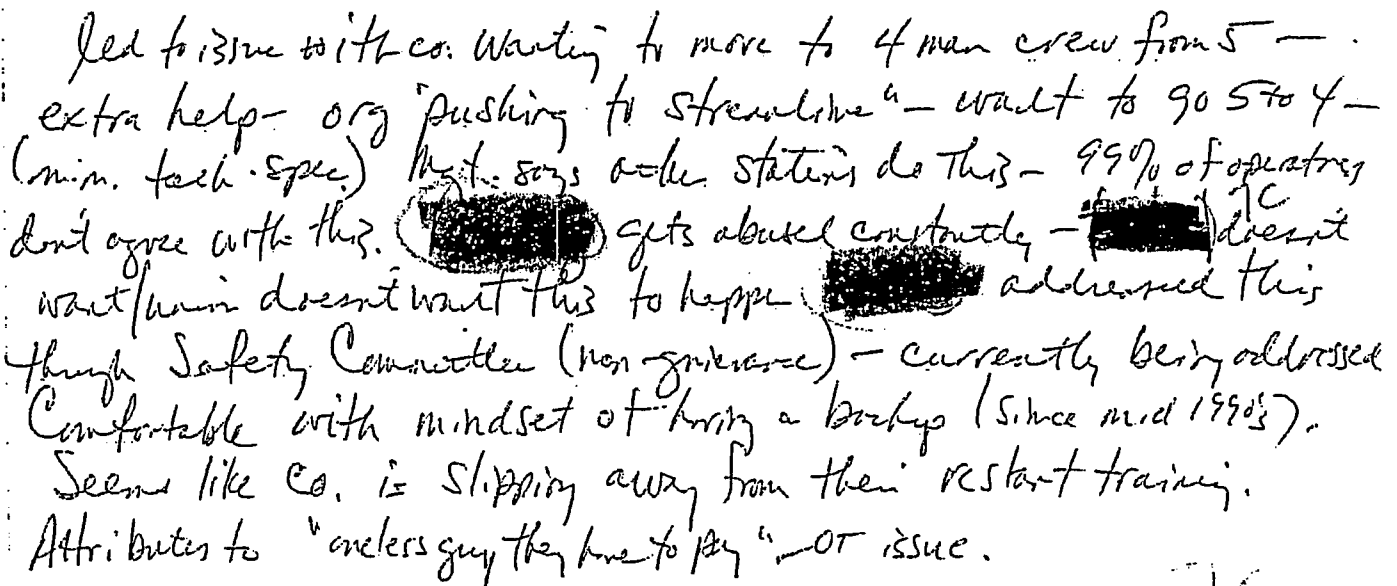 led to issue with co. Wanting to move to 4 man crew from 5 —
extra help - org "pushing to streamline" - want to go 5 to 4 -
(min. tech. spec.) Mgt. says other stations do this - 99% of operators
don't agree with this. gets abused constantly - 7C doesn't
want/union doesn't want this to happen. addressed this
through Safety Committee (non-grievance) - currently being addressed
Comfortable with mindset of having a backup (since mid 1990's).
Seems like Co. is slipping away from their restart training.
Attributes to "one less guy they have to pay" - OT issue.